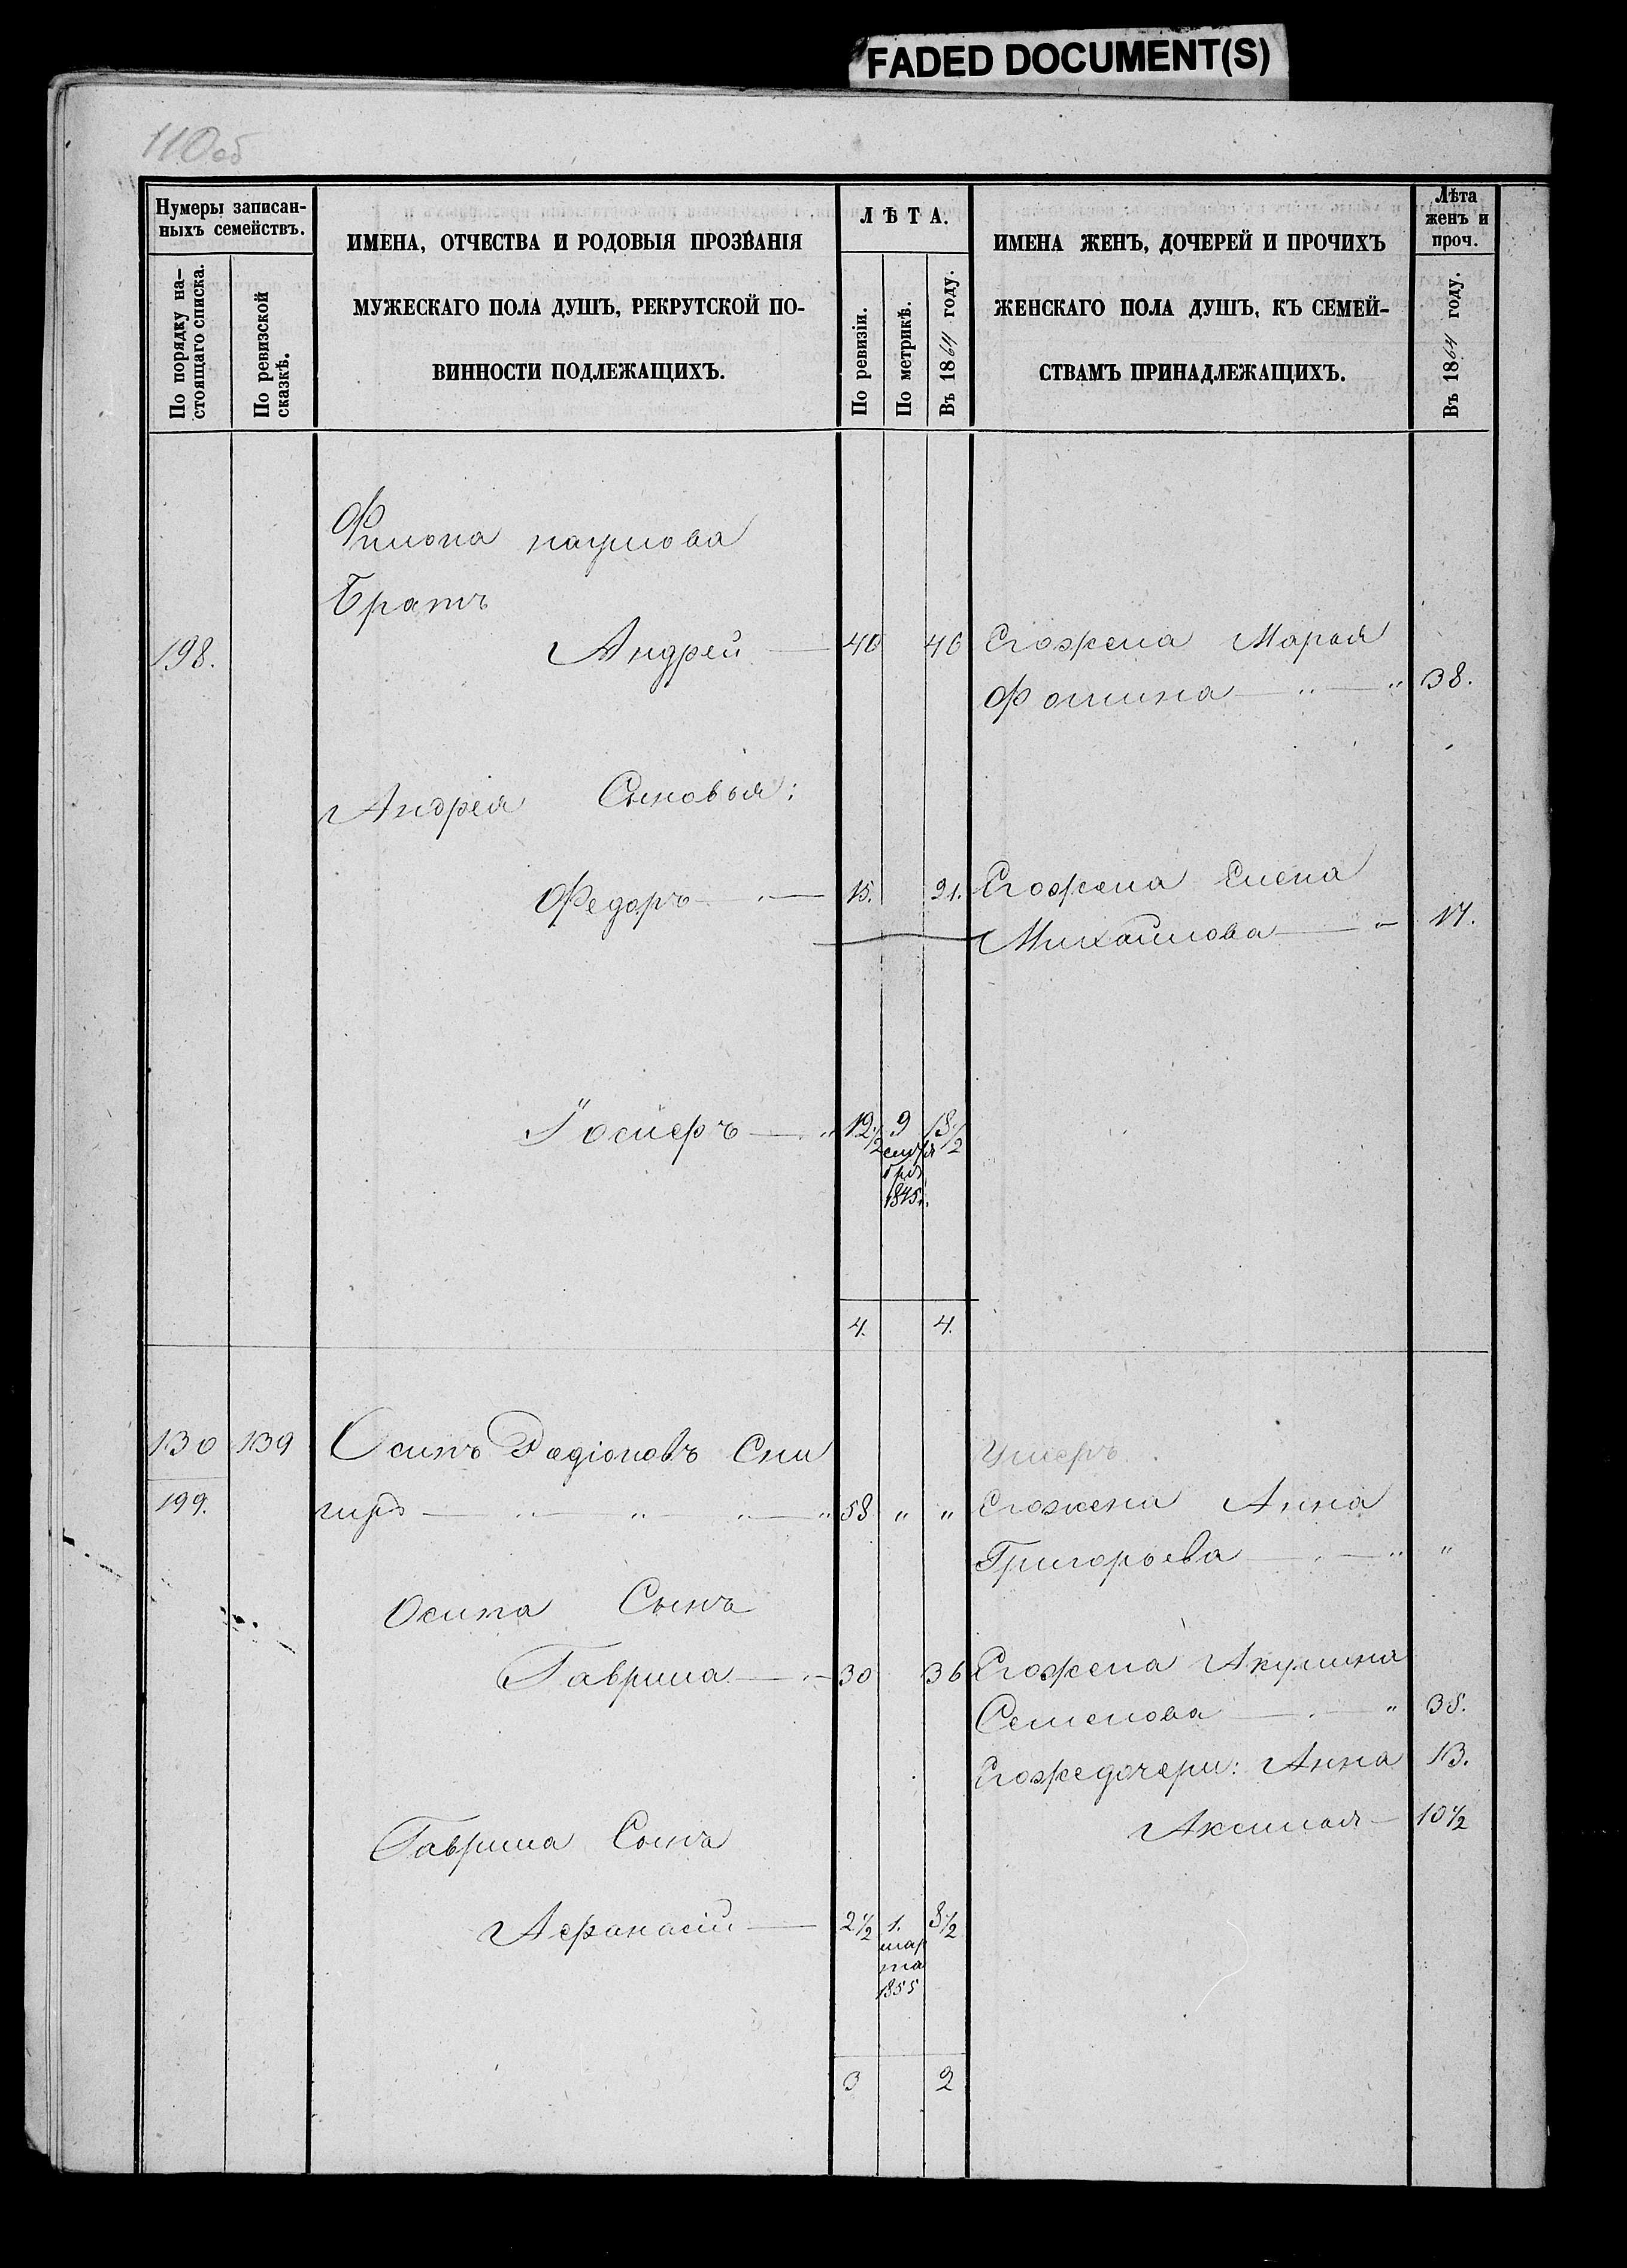 FADED DOCUMENT(S)
110об
Нумеры записан-
ныхъ семействъ.
По порядку на-
стоящаго списка.
По ревизской
сказкѣ.
ИМЕНА, ОТЧЕСТВА И РОДОВЫЯ ПРОЗВАНІЯ
МУЖЕСКАГО ПОЛА ДУШЪ, РЕКРУТСКОЙ ПО-
ВИННОСТИ ПОДЛЕЖАЩИХЪ.
ЛѢТА.
По ревизіи.
По метрикѣ.
Въ 1864 году.
ИМЕНА ЖЕНЪ, ДОЧЕРЕЙ И ПРОЧИХЪ
ЖЕНСКАГО ПОЛА ДУШЪ, КЪ СЕМЕЙ-
СТВАМЪ ПРИНАДЛЕЖАЩИХЪ.
Лѣта
женъ и
проч.
Въ 1864 году.
Филона наумова
Братъ
198. Андрей — 40 46 Егожена Марья
Фомина — " — " 38.
Андрея Сыновья:
Федоръ — 15. 21. Егожена Елена
Михайлова — 17.
Іосифъ — " 12½ 9 18½
сентя
бря
1845г.
4. 4.
130 139 Осипъ Радіоновъ Сни
Умеръ
199. гирь — " — " — " — " 58 " " Егожена Анна
Григорьева — " — " "
Осипа Сынъ
Гаврила — 30 36 Егожена Акулина
Семенова — " 35.
Егожедочери: Анна 13.
Аксинья — 10½
Гаврила Сынъ
Афанасій — 2½ 1. 8½
мар
та
1855
3 2